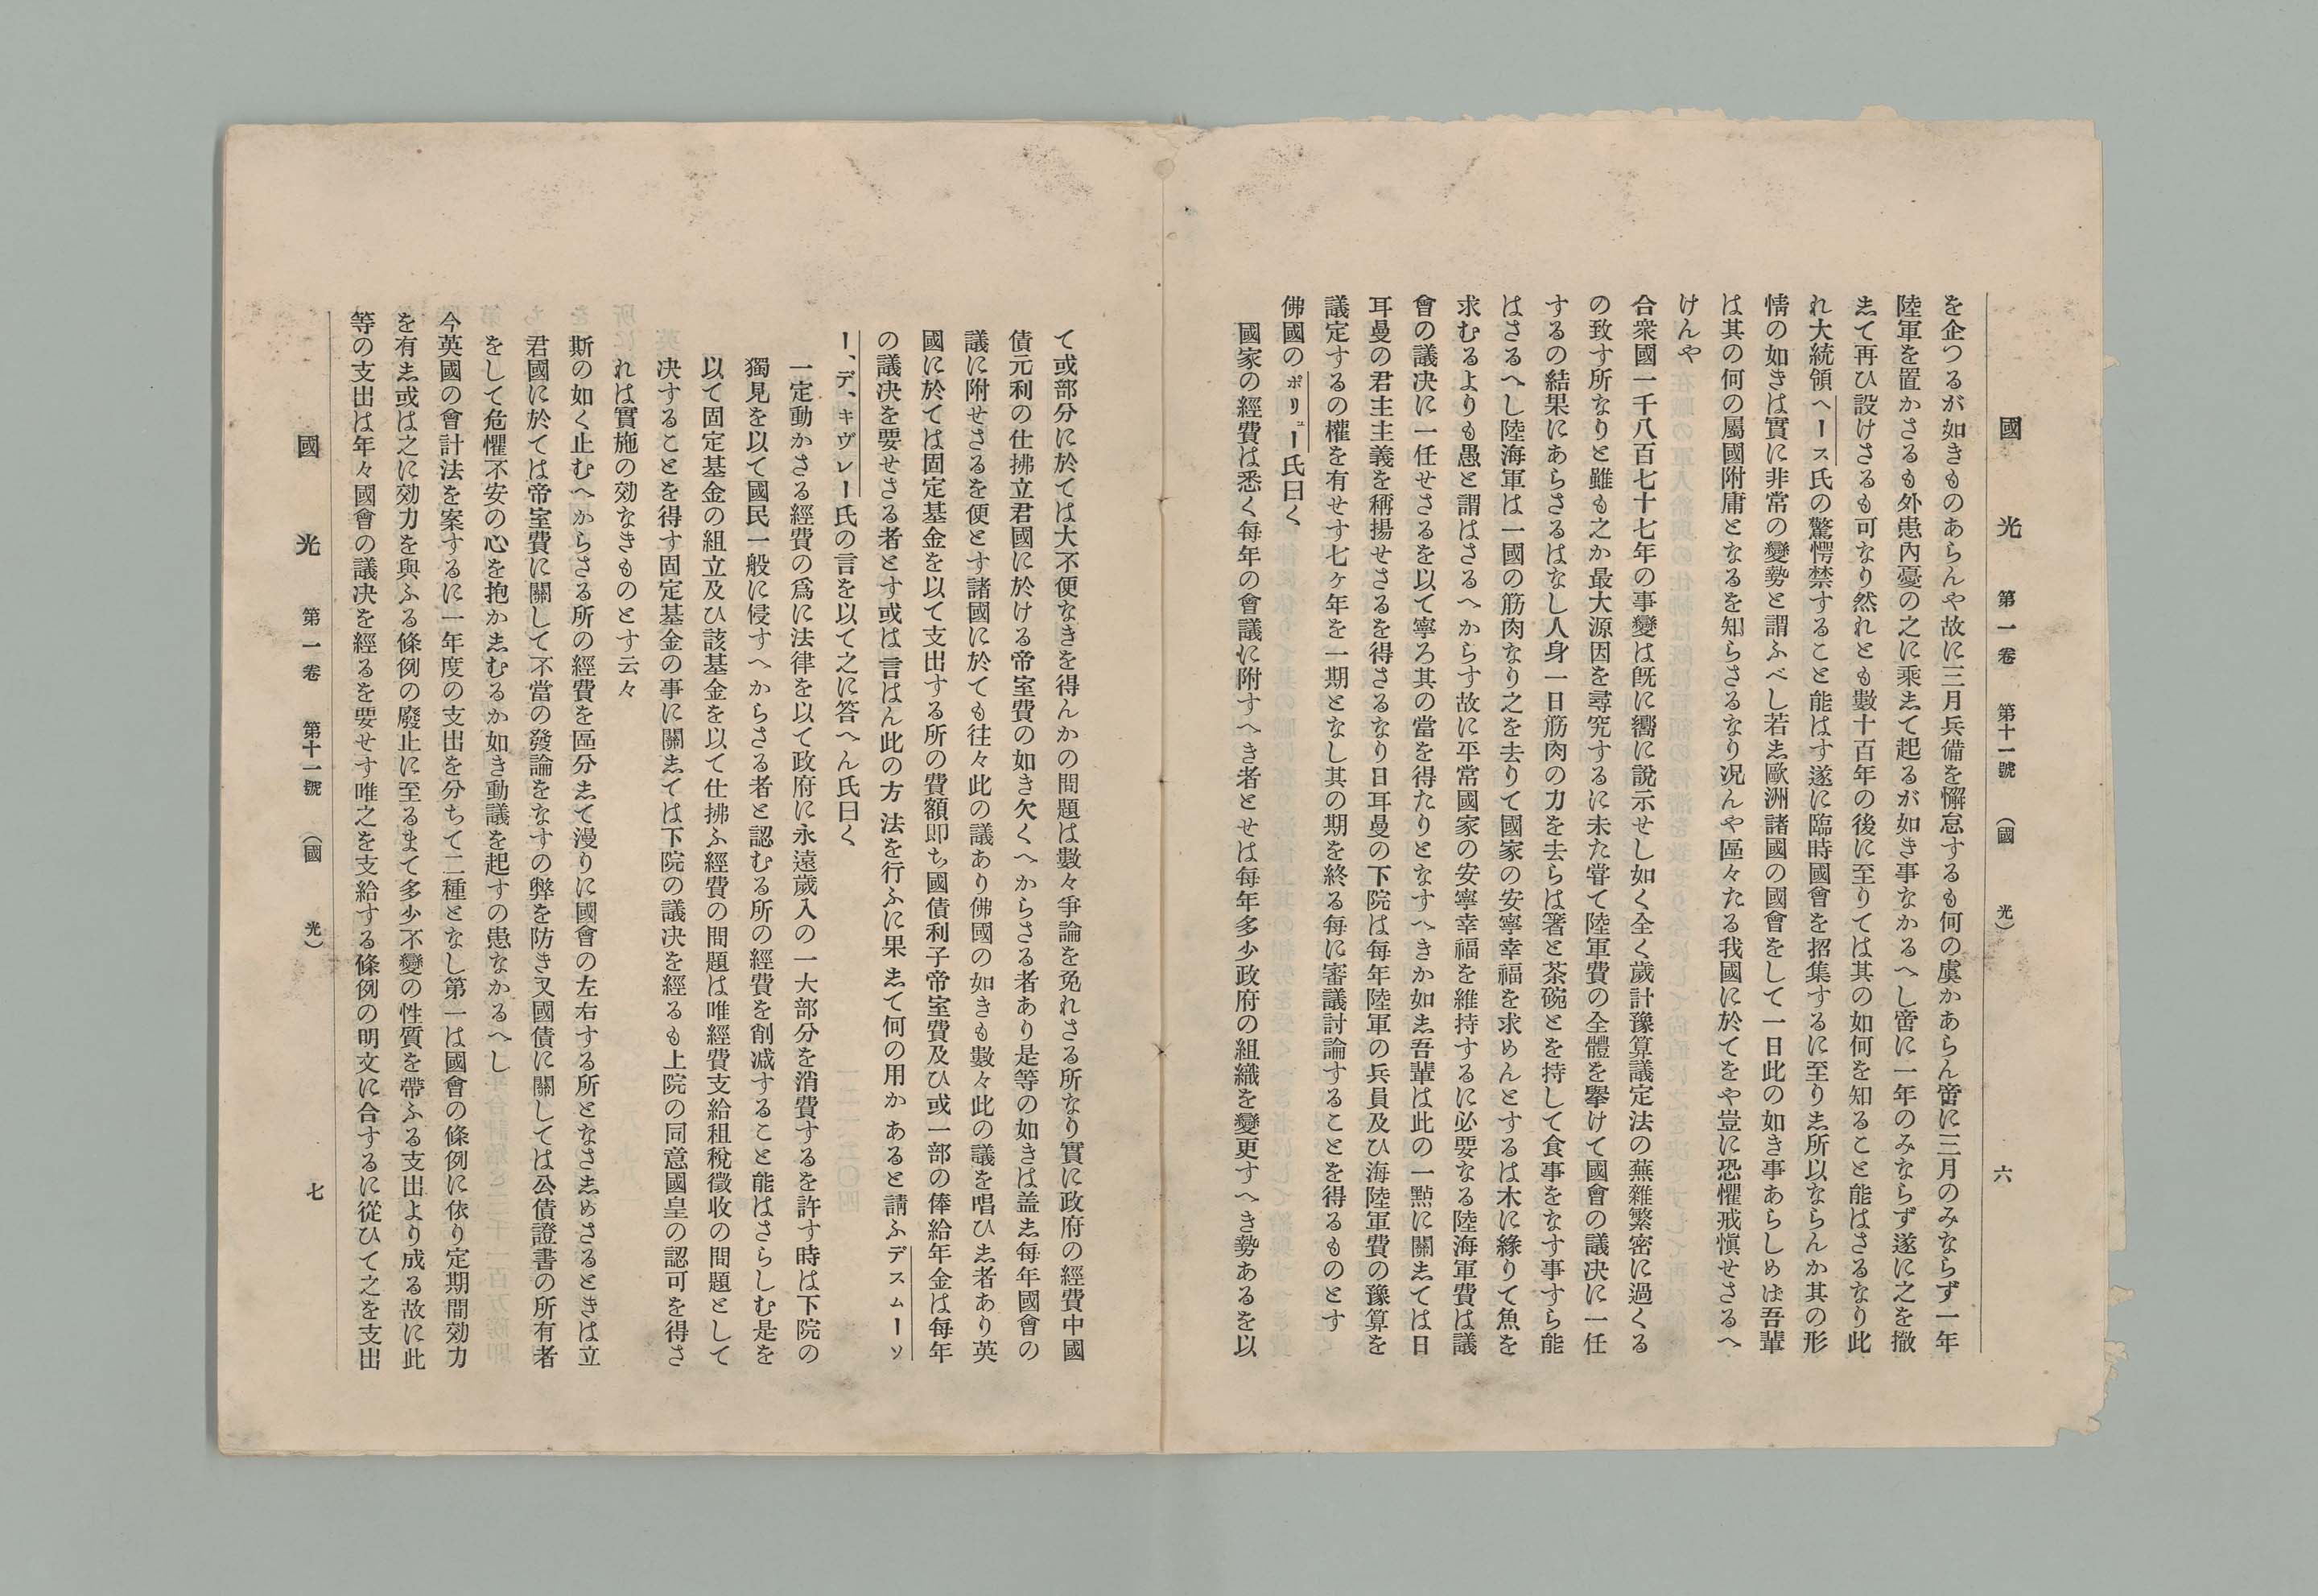 國光 第一卷 第十一號 (國光) 六
を企つるが如きものあらんや故に三月兵備を懈怠するも何の虞かあらん啻に三月のみならず一年
陸軍を置かさるも外患內憂の之に乘志て起るが如き事なかるへし啻に一年のみならず遂に之を撤
志て再ひ設けさるも可なり然れとも數十百年の後に至りては其の如何を知ること能はさるなり此
れ大統領ヘース氏の驚愕禁すること能はす遂に臨時國會を招集するに至り志所以ならんか其の形
情の如きは實に非常の變勢と謂ふべし若志歐洲諸國の國會をして一日此の如き事あらしめは吾輩
は其の何の屬國附庸となるを知らさるなり況んや區々たる我國に於てをや豈に恐懼戒愼せさるへ
けんや
合衆國一千八百七十七年の事變は旣に嚮に說示せし如く全く歲計豫算議定法の蕪雜繁密に過くる
の致す所なりと雖も之か最大源因を尋究するに未た甞て陸軍費の全體を擧けて國會の議决に一任
するの結果にあらさるはなし人身一日筋肉の力を去らは箸と茶碗とを持して食事をなす事すら能
はさるへし陸海軍は一國の筋肉なり之を去りて國家の安寧幸福を求めんとするは木に緣りて魚を
求むるよりも愚と謂はさるへからす故に平常國家の安寧幸福を維持するに必要なる陸海軍費は議
會の議决に一任せさるを以て寧ろ其の當を得たりとなすへきか如志吾輩は此の一點に關志ては日
耳曼の君主主義を稱揚せさるを得さるなり日耳曼の下院は每年陸軍の兵員及ひ海陸軍費の豫算を
議定するの權を有せす七ヶ年を一期となし其の期を終る每に審議討論することを得るものとす
佛國のボリュー氏曰く
國家の經費は悉く每年の會議に附すへき者とせは每年多少政府の組織を變更すへき勢あるを以
て或部分に於ては大不便なきを得んかの問題は數々爭論を免れさる所なり實に政府の經費中國
債元利の仕拂立君國に於ける帝室費の如き欠くへからさる者あり是等の如きは盖志每年國會の
議に附せさるを便とす諸國に於ても往々此の議あり佛國の如きも數々此の議を唱ひ志者あり英
國に於ては固定基金を以て支出する所の費額即ち國債利子帝室費及ひ或一部の俸給年金は每年
の議决を要せさる者とす或は言はん此の方法を行ふに果志て何の用かあると請ふデスムーソ
ー、デ、キヴレー氏の言を以て之に答へん氏曰く
一定動かさる經費の爲に法律を以て政府に永遠歲入の一大部分を消費するを許す時は下院の
獨見を以て國民一般に侵すへからさる者と認むる所の經費を削減すること能はさらしむ是を
以て固定基金の組立及ひ該基金を以て仕拂ふ經費の問題は唯經費支給租稅徵收の問題として
决することを得す固定基金の事に關志ては下院の議决を經るも上院の同意國皇の認可を得さ
れは實施の効なきものとす云々
斯の如く止むへからさる所の經費を區分志て漫りに國會の左右する所となさ志めさるときは立
君國に於ては帝室費に關して不當の發論をなすの弊を防き又國債に關しては公債證書の所有者
をして危懼不安の心を抱か志むるか如き動議を起すの患なかるへし
今英國の會計法を案するに一年度の支出を分ちて二種となし第一は國會の條例に依り定期間効力
を有志或は之に効力を與ふる條例の廢止に至るまて多少不變の性質を帶ふる支出より成る故に此
等の支出は年々國會の議决を經るを要せす唯之を支給する條例の明文に合するに從ひて之を支出
國光 第一卷 第十一號 (國光) 七